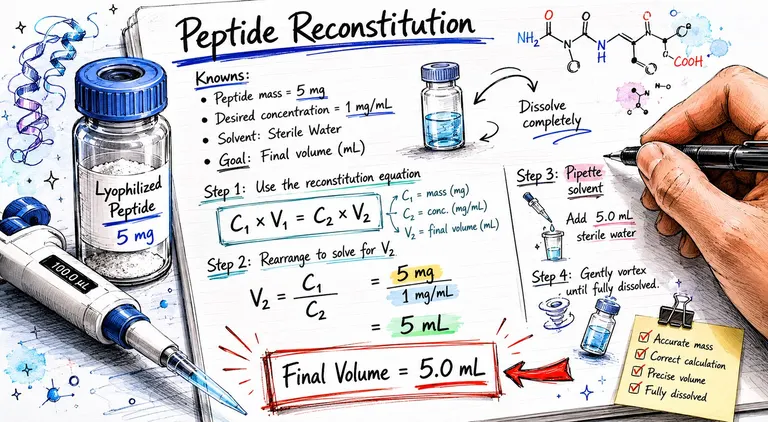 Peptide Reconstitution
Knowns:
• Peptide mass = 5 mg
• Desired concentration = 1 mg/mL
• Solvent: Sterile Water
• Goal: Final volume (mL)
Dissolve
completely
NH₂
O
O
NH
O
COOH
Lyophilized
Peptide
5 mg
100.0 µL
Step 1: Use the reconstitution equation
C₁ × V₁ = C₂ × V₂
C₁ = mass (mg)
C₂ = conc. (mg/mL)
V₂ = final volume (mL)
Step 2: Rearrange to solve for V₂
V₂ = C₁ / C₂ = 5 mg / 1 mg/mL
= 5 mL
Final Volume = 5.0 mL
Step 3: Pipette
solvent
Add 5.0 mL
sterile water
Step 4: Gently vortex
until fully dissolved.
Accurate mass
Correct calculation
Precise volume
Fully dissolved